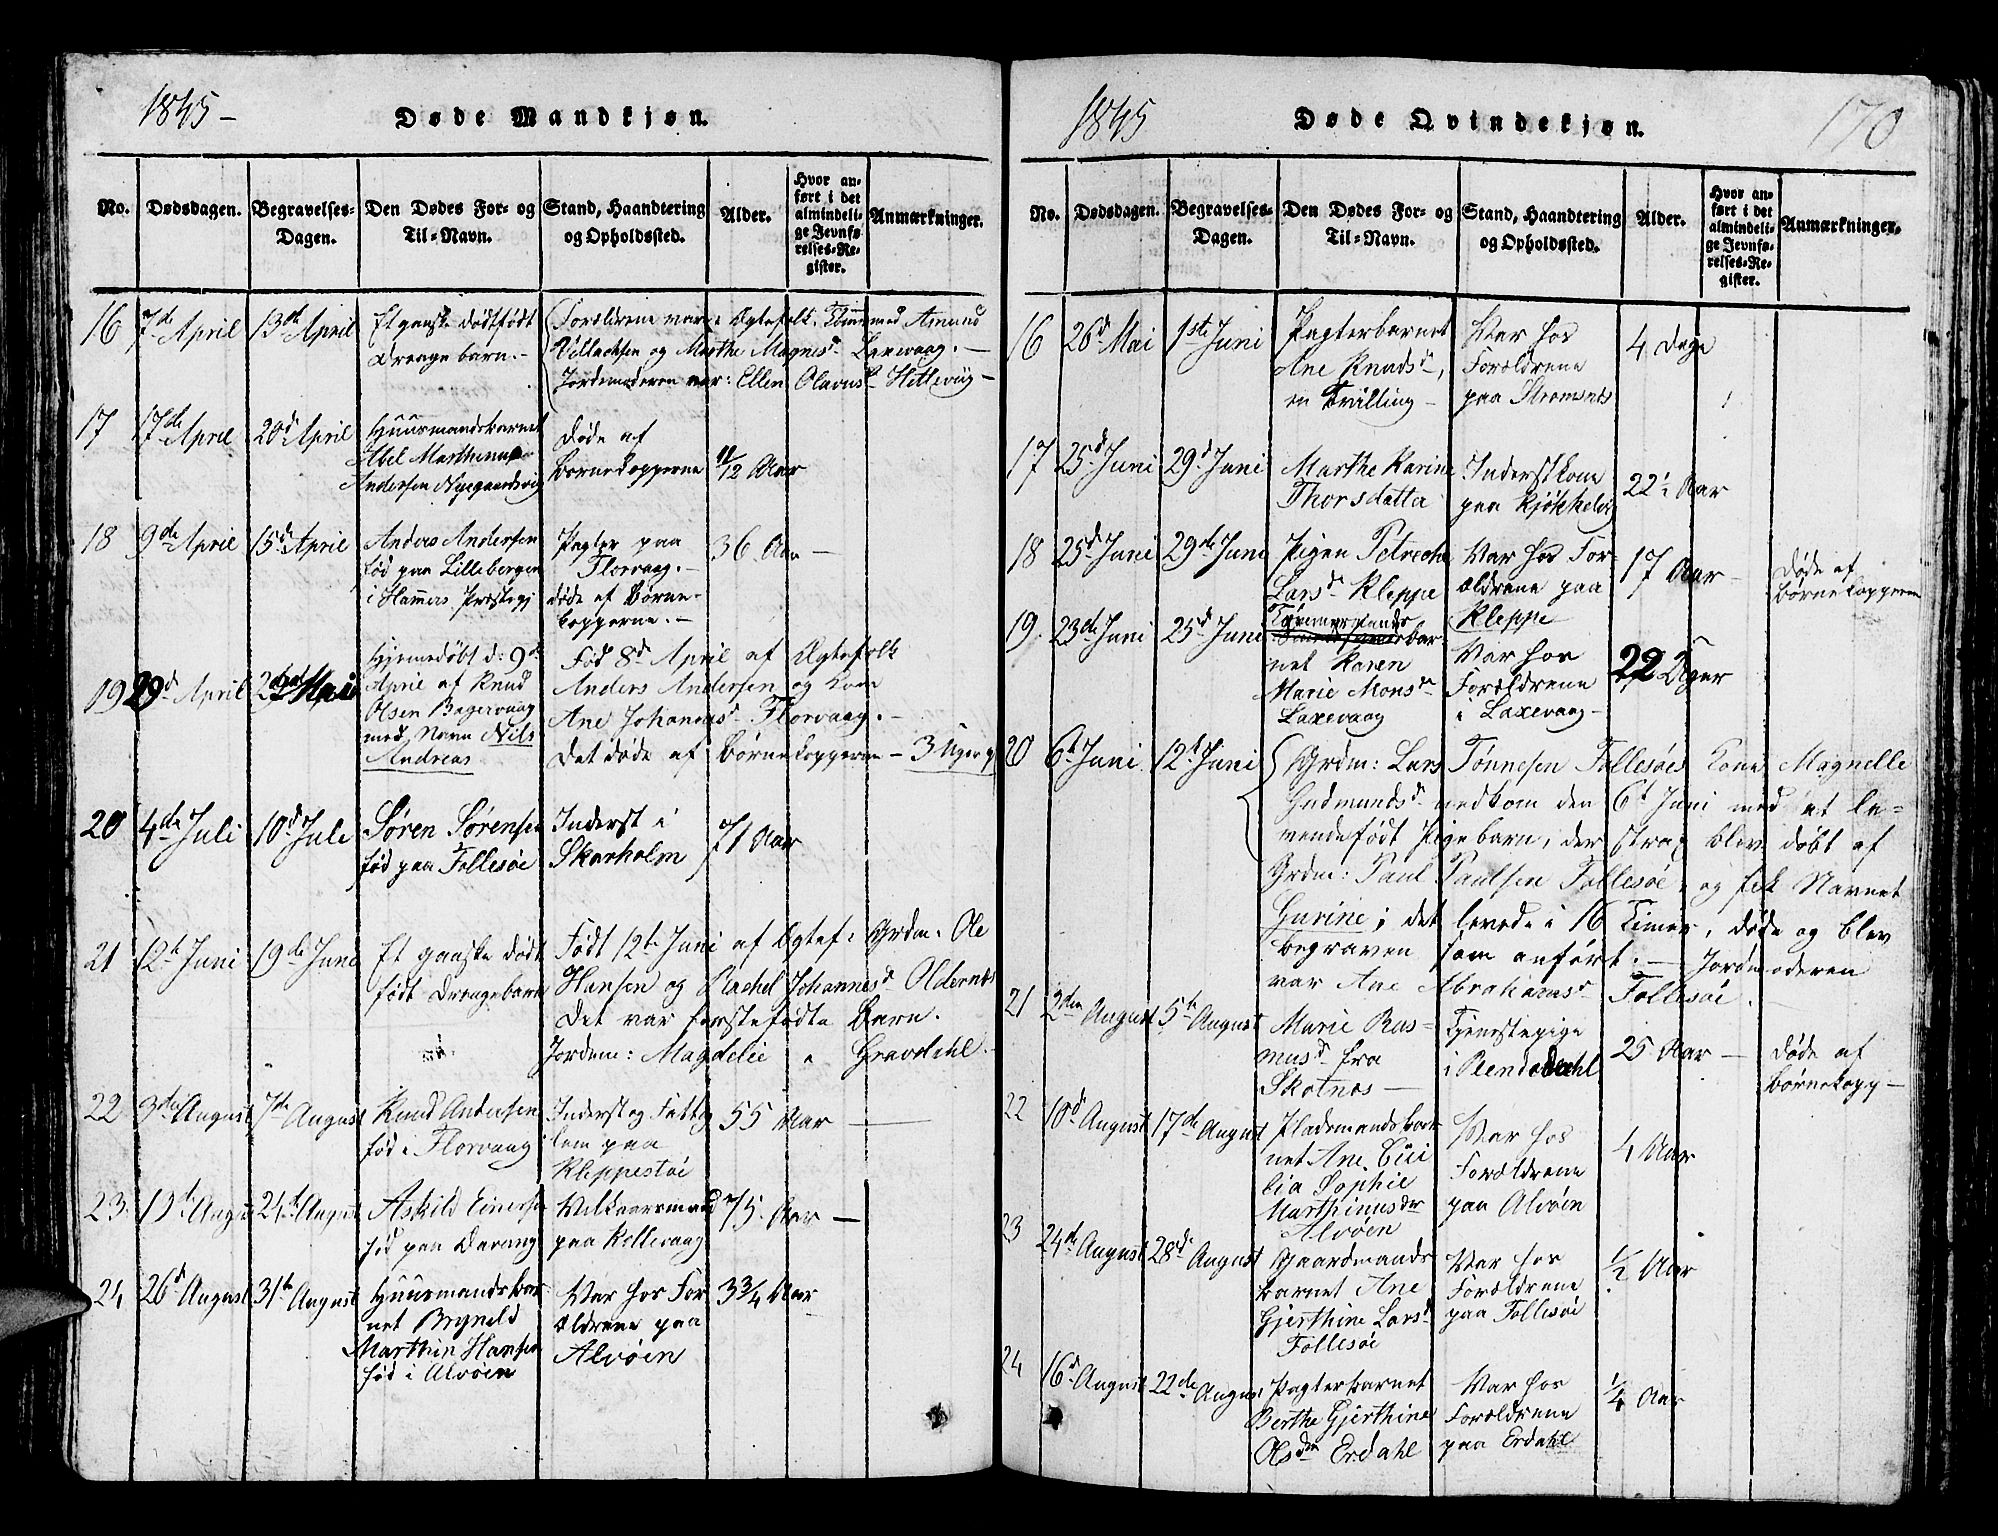 1845 –
Døde Mandkjøn.
No.
Dødsdagen.
Begravelses-
Dagen.
Den Dødes For- og
Til-Navn.
Stand, Haandtering
og Opholdssted.
Alder.
Hvor an-
ført i det
almindeli-
ge Jevnfø-
relses-Re-
gister.
Anmærkninger.
16 7de April 13de April
Et ganske dødtfødt
Drengebarn. –
Forældrene var: Ægtefolk Tømmermd Amund
og Marthe Magnesd Laxevaag. –
Jordemoderen var: Ellen Olavusd Hetlevig –
17 17de April 20d April
Huusmandsbarnet
Abel Marthinus
Andersen Nygaardsvig
Døde af
Børnekopperne
11/12 Aar
18 9de April 15d April
Anders Andersen
fød paa Lillebergen
i Hammers Præstegj
Pagter paa
Florvaag. –
døde af Børne-
kopperne. –
36 Aar –
19 29d April 2den Mai
Hjemmedøbt d: 9de
April af Knud
Olsen
med Navn Nils
Andreas
Fød 8d April af Ægtefolk
Anders Andersen og Kone
Ane Johannesd Florvaag. –
Det døde af Børnekopperne – 3 Uger g
20 4de Juli 10d Juli
Søren Sørensen
fød paa Follesøe
Inderst i
Skarholm
71 Aar
21 12te Juni 19de Juni
Et ganske dødt
født Drengebarn
Født 12te Juni af Ægtef: Grdm. Ole
Hansen og Rachel Johannesd Oldernes
Det var førstefødte Barn.
Jordem: Magdelie i Gravdahl. –
22 3die August 7de August
Knud Andersen
fød i Florvaag
Inderst og Fattig
lem paa
Kleppestøe
55 Aar
23 19de August 24de August
Askild Einersen
fød paa
Velkaarsmand
paa
75 Aar –
24 26d August 31te August
Huusmandsbar
net Brynild
Marthin Hansen
fød i Alvøen
Var hos For
ældrene paa
Alvøen
3 3/4 Aar
1845
Døde Qvindekjøn.
170
No.
Dødsdagen.
Begravelses-
Dagen.
Den Dødes For- og
Til-Navn.
Stand, Haandtering
og Opholdssted.
Alder.
Hvor an-
ført i det
almindeli-
ge Jevnfø-
relses-Re-
gister.
Anmærkninger.
16 26d Mai 1ste Juni
Pagterbarnet
Ane Knudsd,
en Tvilling –
Var hos
Forældrene
paa Strømsnes
4 Dage
17 25d Juni 29d Juni
Marthe Karine
Thorsdatter
Inderstkone
paa
22 1/2 Aar
18 25d Juni 29de Juni
Pigen Petreche
Larsd Kleppe
Var hos For-
ældrene paa
Kleppe
17 Aar –
Døde af
Børnekopperne
19 23de Juni 25d Juni
Tømmermands
bar
net Karen
Marie Monsdr
Laxevaag
Var hos
Forældrene
i Laxevaag –
22 Uger
20 6te Juni 12te Juni
Grdm: Lars Tønnesen Follesøes Kone Magnelle
Gudmundsd nedkom den 6te Juni med et le-
vendefødt Pigebarn, der strax blev døbt af
Grdm: Paul Paulsen Follesøe, og fik Navnet
Gurine; det levede i 16 Timer, døde og blev
begraven som anført. – Jordmoderen
var Ane Abrahamsd Follesøe.
21 2den August 5te August
Marie Ras-
musd fra
Skotnes –
Tjenestepige
i
25 Aar –
Døde af
Børnekopp –
22 10d August 17de August
Pladsmandsbar
net Ane Cici
lia Sophie
Marthinusdr
Alvøen
Var hos
Forældrene
paa Alvøen
4 Aar
23 24de August 28de August
Gaardmands
barnet Ane
Gjerthine Larsd
Follesøe
Var hos
Forældrene
paa Follesøe
1/2 Aar
24 16d August 22de August
Pagterbarnet
Berthe Gjerthine
Olsdr Erdahl
Var hos
Forældrene
paa Erdahl
1/4 Aar